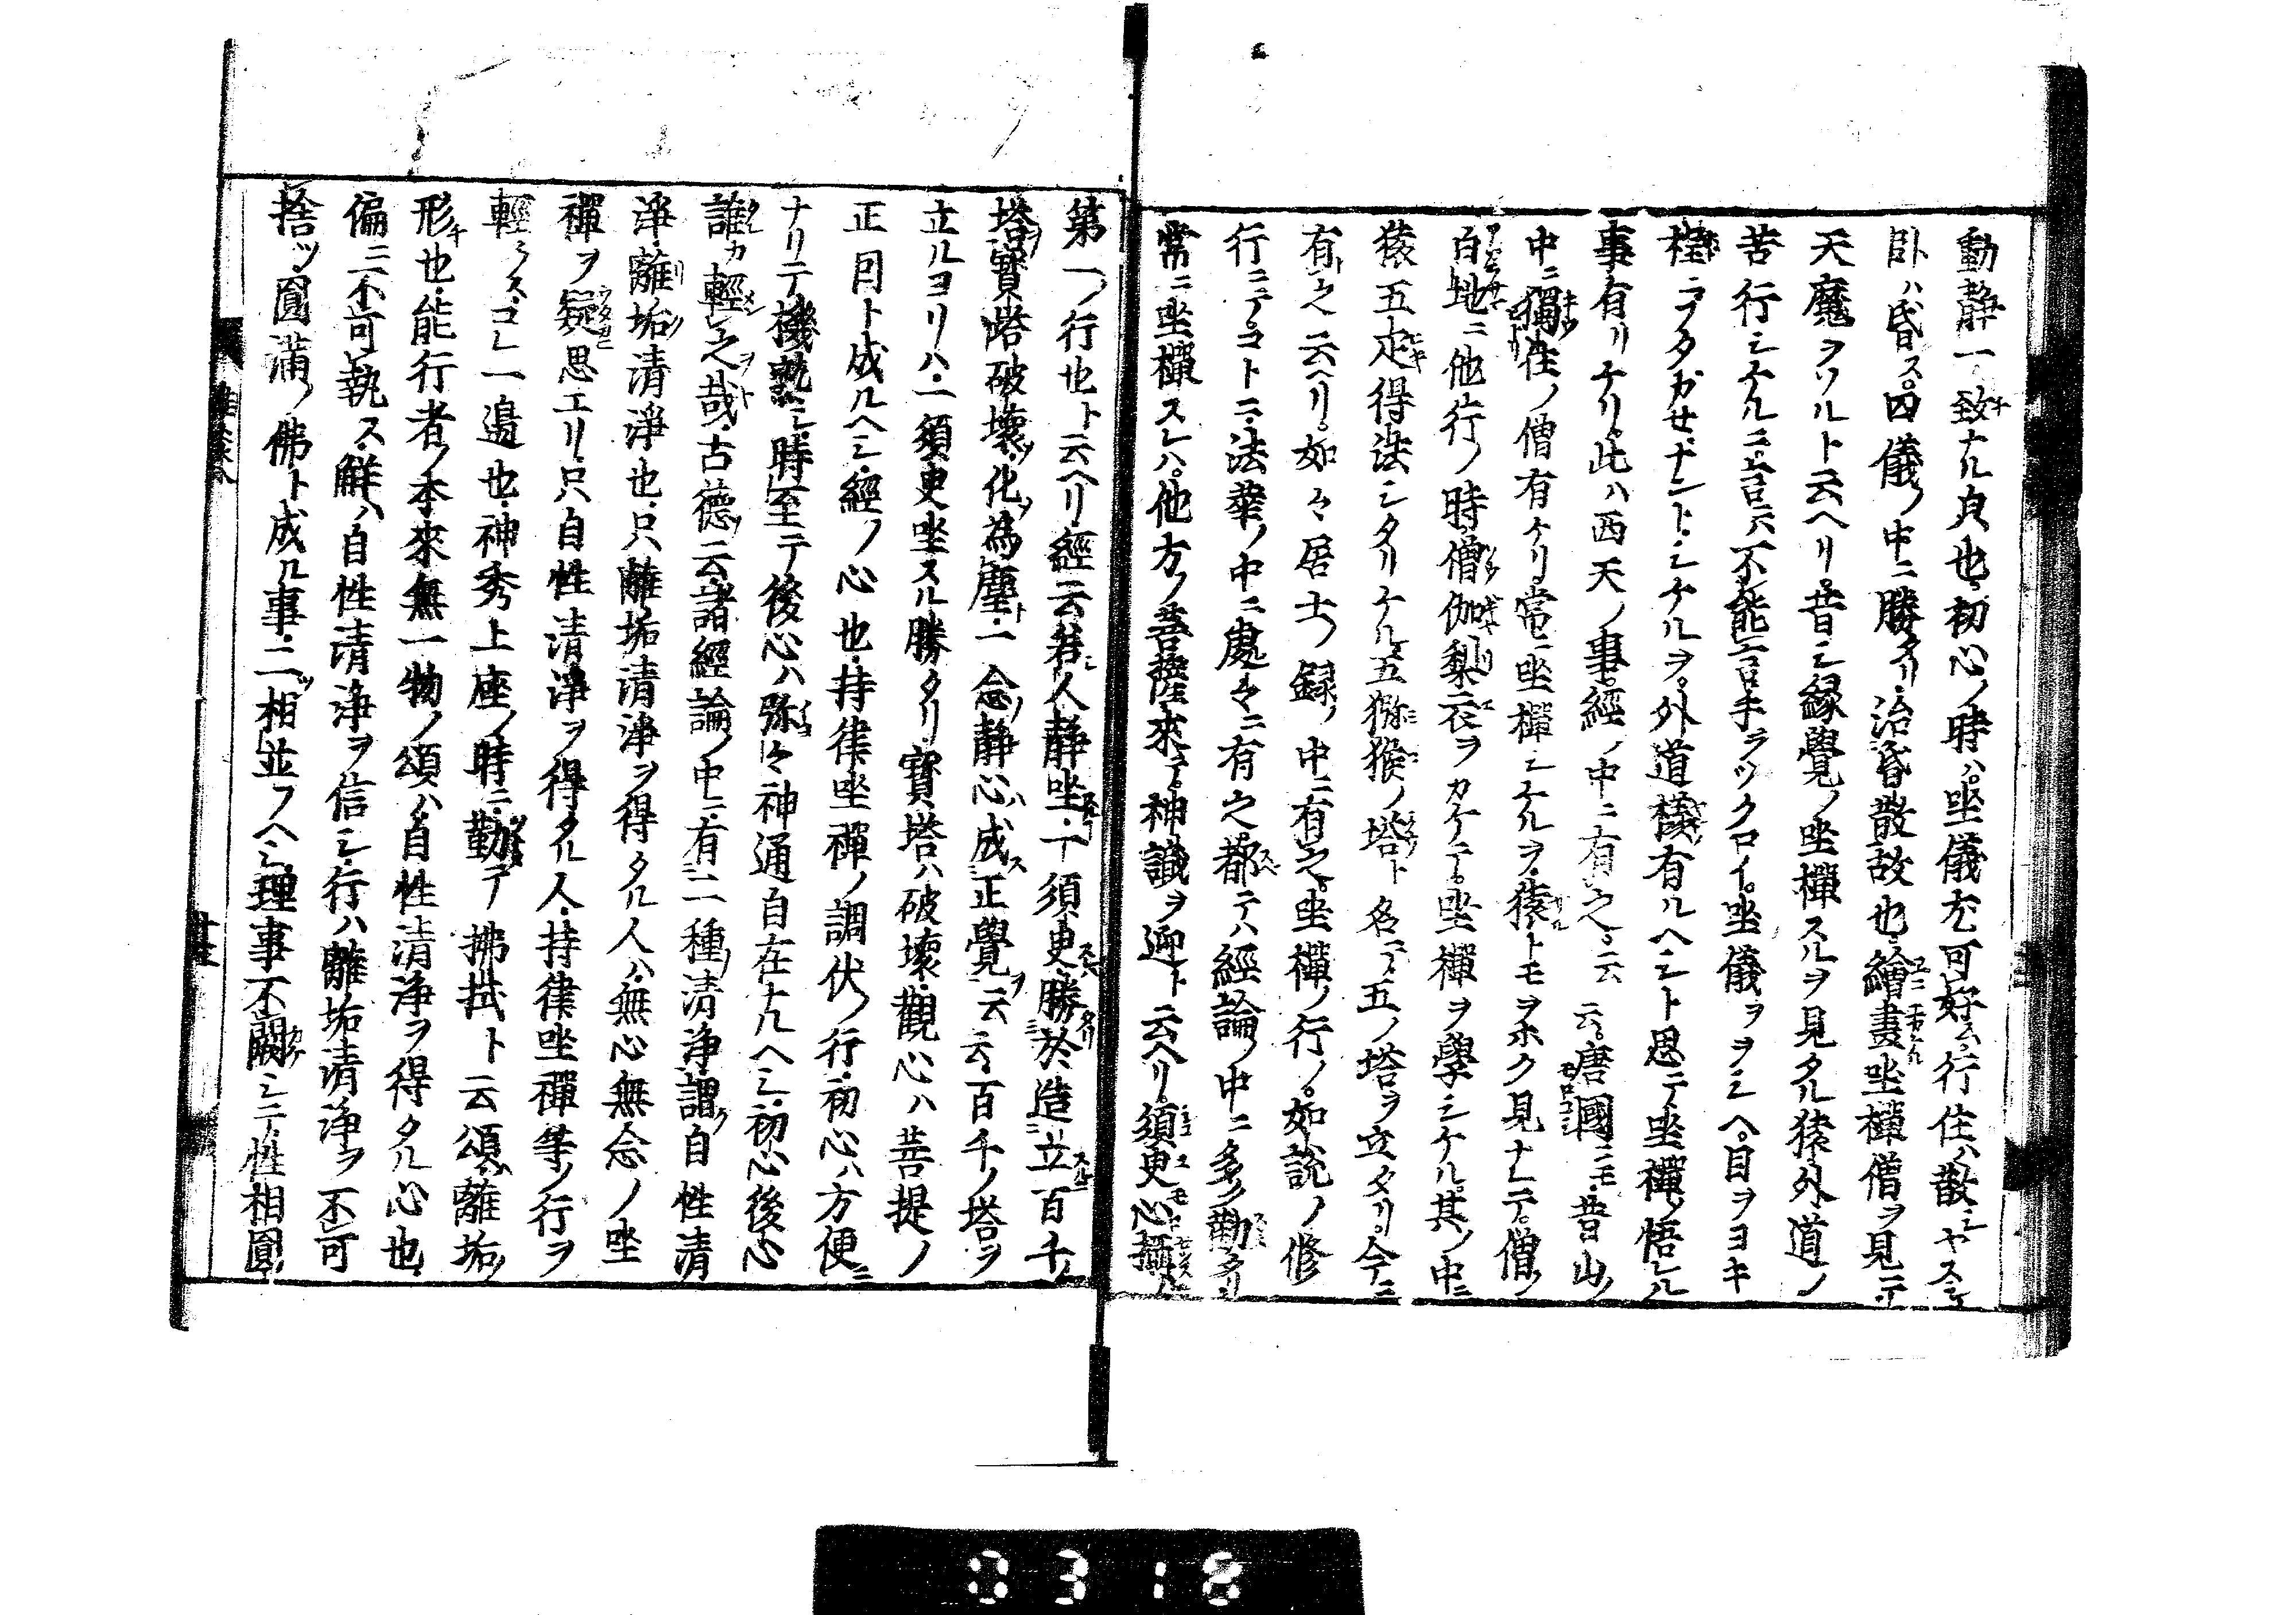 動静一致ナル皃也初心ノ時ハ坐儀尤可好ム行住ハ散シヤスシ
臥ハ昏ス四儀ノ中ニ勝タリ治昏散故也繪畫坐禪僧ヲ見テ
天魔ヲソルト云ヘリ昔シ縁覺ノ坐禪スルヲ見タル猿外道ノ
苦行シケルニ言ハ不能言手ヲツクロイ坐儀ヲヲシヘ目ヲヨキ
程ニフタガセナントシケルヲ外道様有ルヘシト思テ坐禪シ悟レル
事有リケリ此ハ西天ノ事經ノ中ニ有之云云唐國ニモ昔山ノ
中ニ獨住ノ僧有ケリ常ニ坐禪シケルヲ猿トモヲホク見ナレテ僧ノ
白地ニ他行ノ時僧伽梨衣ヲカケテ坐禪ヲ學シケル其ノ中ニ
猿五疋得法シタリケル五猕猴ノ塔ト名テ五ノ塔ヲ立タリ今ニ
有之云ヘリ如々居士ノ録ノ中ニ有之坐禪ノ行ノ如説ノ修
行ニテコトニ法華ノ中ニ處々ニ有之都テハ經論ノ中ニ多ク勸タリ
常ニ坐禪スレハ他方ノ菩薩來テ神識ヲ迎ト云ヘリ須臾心攝ルハ
第一ノ行也ト云ヘリ經云若人静坐一須臾勝於造立百千ノ
塔寳塔破壊化為塵一念静心成正覺云云百千ノ塔ヲ
立ルヨリハ一須臾坐スル勝タリ寳塔ハ破壊觀心ハ菩提ノ
正因ト成ルヘシ經ノ心也持律坐禪ノ調伏ノ行初心ハ方便ニ
ナリテ機熟シ時至テ後心ハ弥々神通自在ナルヘシ初心後心
誰カ輕之哉古德云諸經論ノ中ニ有二種清淨謂自性清
淨離垢清淨也只離垢清淨ヲ得タル人ハ無心無念ノ坐
禪ヲ疑思エリ只自性清淨ヲ得タル人持律坐禪等ノ行ヲ
輕ミスコレ一邊也神秀上座ノ時ニ勤テ拂拭ト云頌ハ離垢ノ
形也能行者ノ本來無一物ノ頌ハ自性清淨ヲ得タル心也
偏ニ不可執ス解ハ自性清淨ヲ信シ行ハ離垢清淨ヲ不可
捨ツ圓滿ノ佛ト成ル事二ツ相並フヘシ理事不闕シテ性相圓
0318